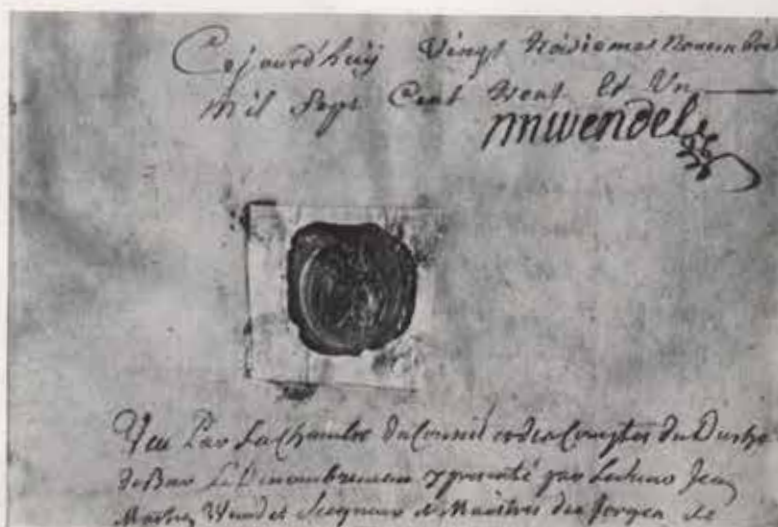 Cejourd'huy Vingt troisieme Novembre
mil Sept Cent trent Et Un
mwendel
Veu Par La Chambre du Conseil et des Comptes du Duche
de Bar Le Denombrement y presenté par Le Jean
Martin Wendel Seigneur & Maistres des forges de